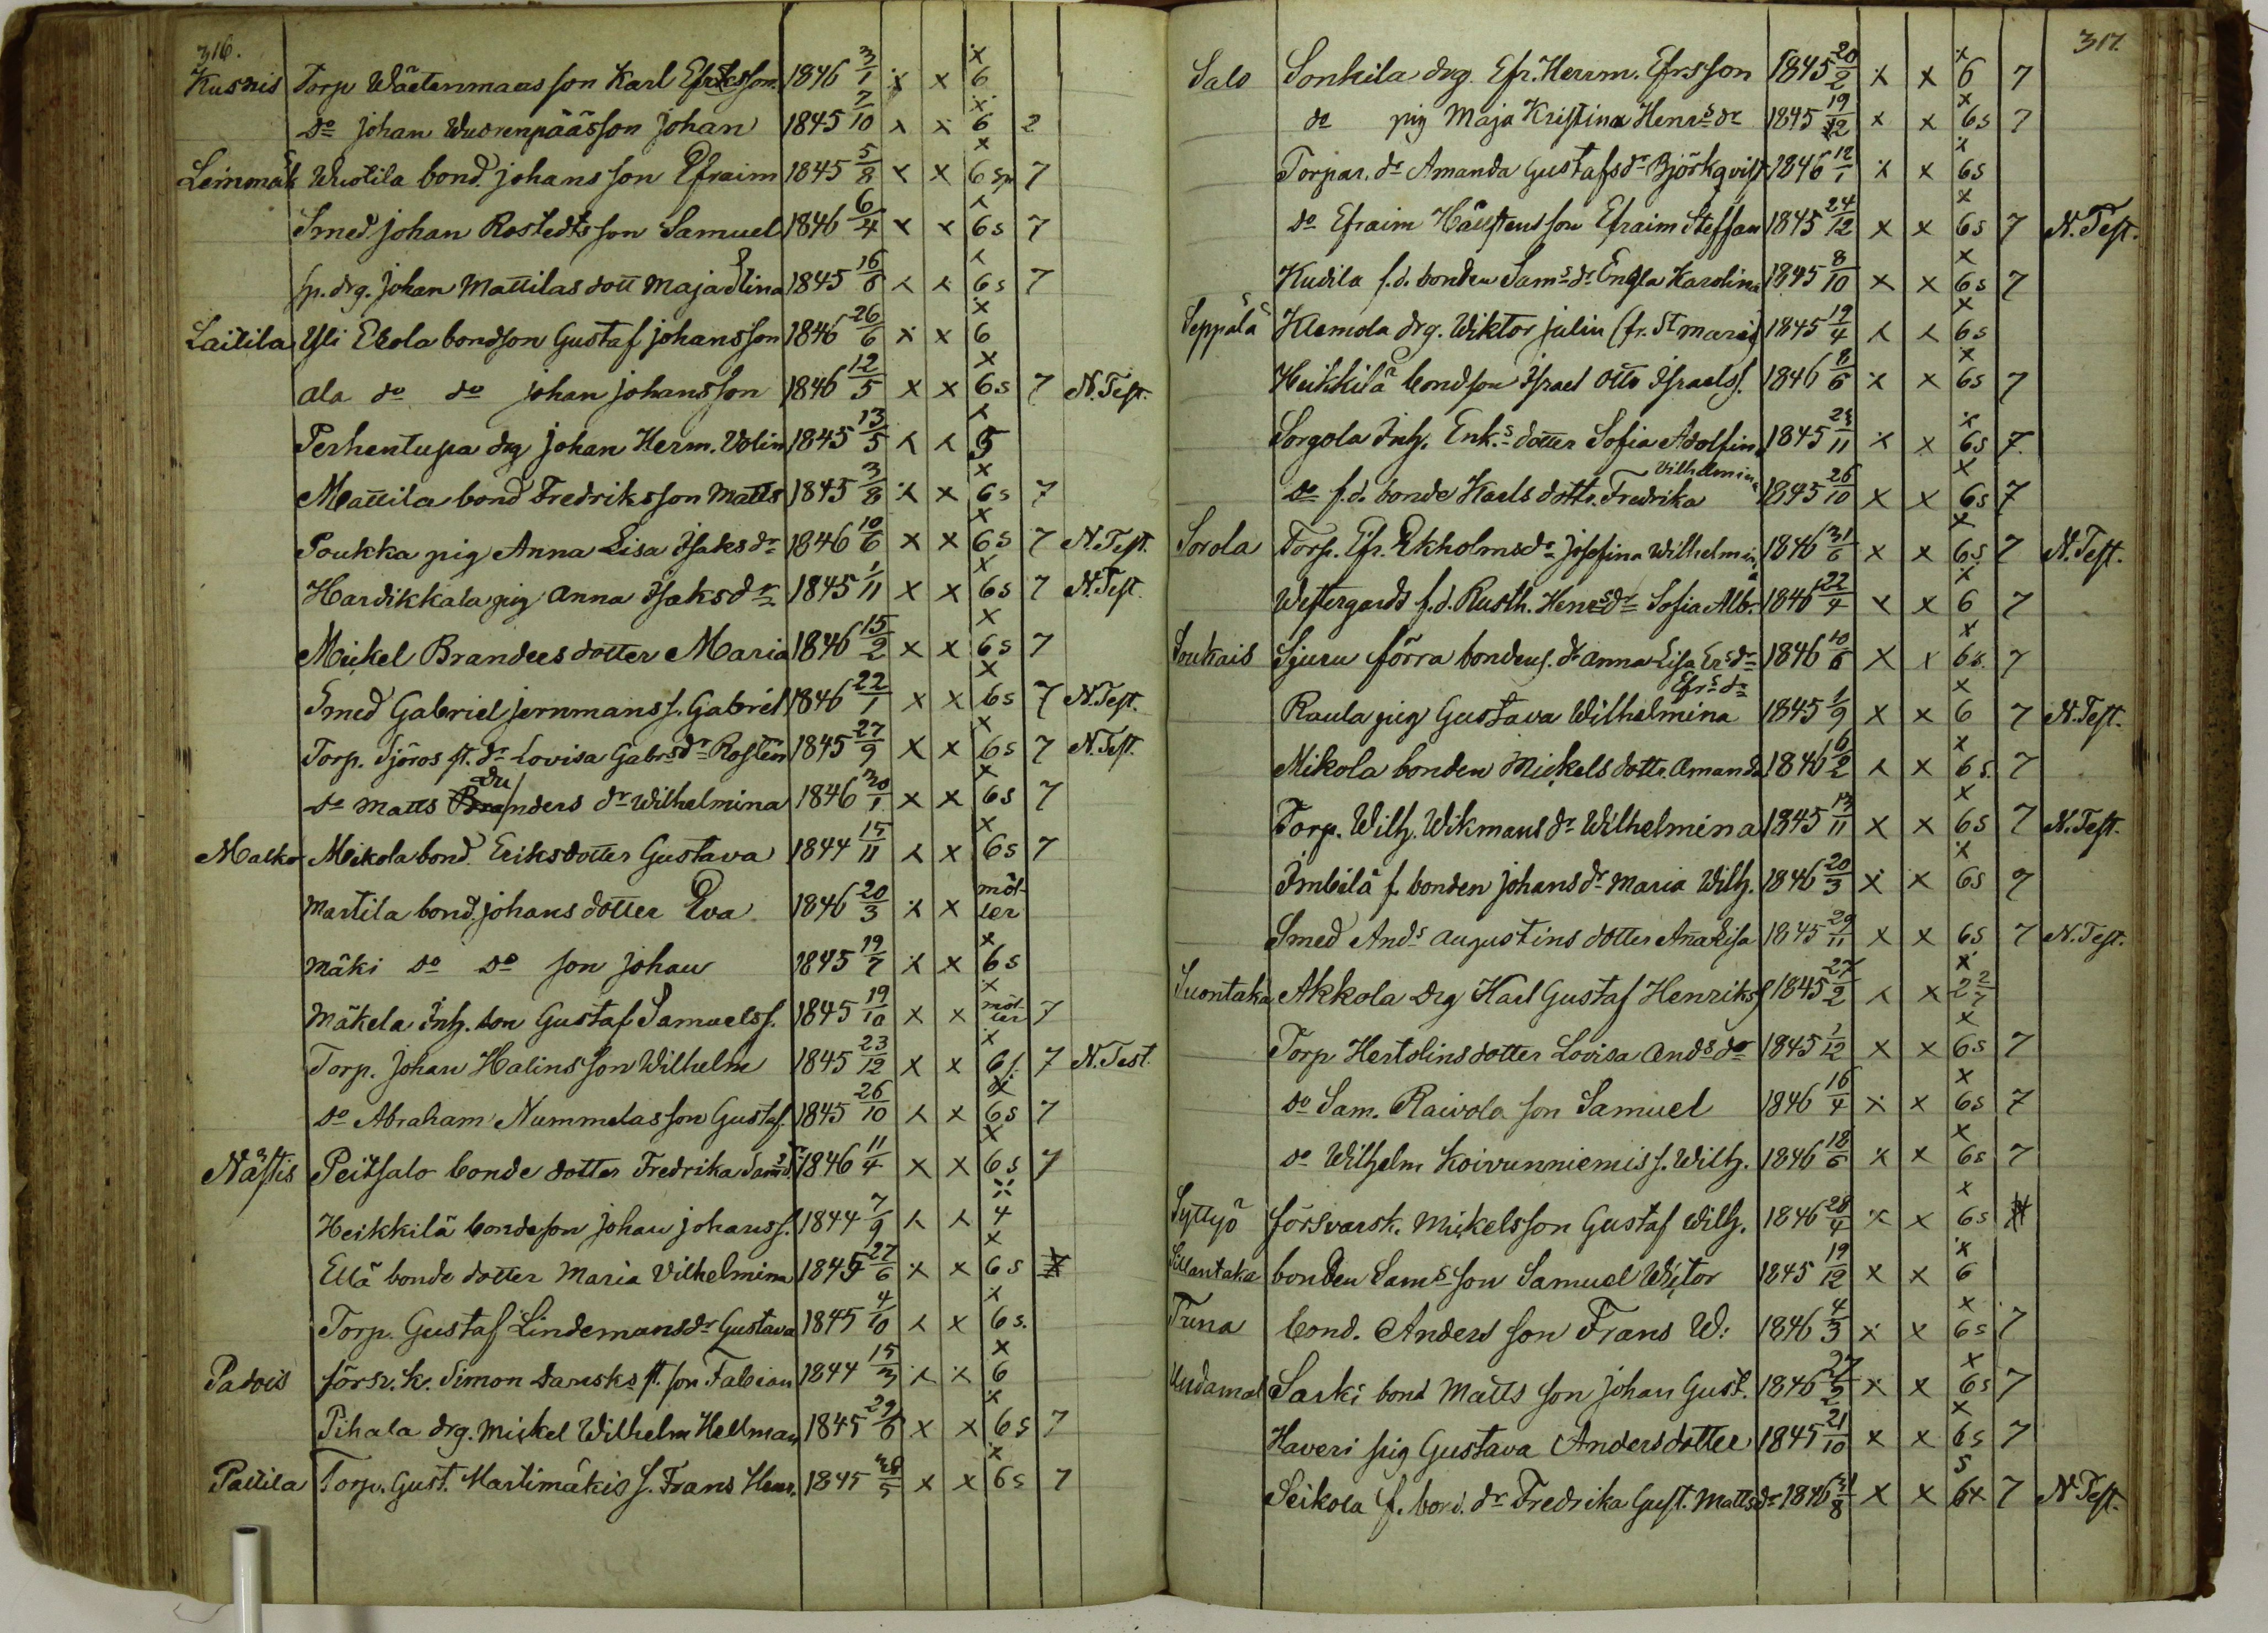 316.
Kusnis Torp Wäätenmaas son Karl Efrksson. 1846 3/1 x x 6
do johan Wuorenpääs son johan 1845 7/10 x x 6 2
Leinmäk Wuotila bond. johans son Efraim 1845 5/8 x x 6 sp 7
Smed johan Rostedts son Samuel 1846 6/4 x x 6s 7
sp. drg. johan Mattilas dott Maja Slina 1845 16/6 x x 6s 7
Laitila Yli Ekola bondson Gustaf johansson 1846 26/6 x x 6
ala do do johan johansson 1846 12/5 x x 6s 7 N.Test.
Perhentupa drg johan Herm. Volin 1845 13/5 x x 5
Mattila bond Fredriksson Matts 1845 3/8 x x 6s 7
Poukka pig Anna Lisa Isaks dr 1846 10/6 x x 6s 7 N.Test.
Hardikkala pig anna Isaks dr 1845 1/11 x x 6s 7 N.Test.
Mickel Branders dotter Maria 1846 15/2 x x 6s 7
Smed Gabriel jernmans s. Gabriel 1846 22/1 x x 6s 7 N.Test.
Torp. Sjöros st. dr Lovisa Gabrsdr Rostén 1845 27/9 x x 6s 7 N.Test.
do Matts Branders dr Wilhelmina 1846 30/1 x x 6s 7
Malko Mikola bond. Eriks dotter Gustava 1844 15/11 x x 6s 7
Martila bond. johans dotter Eva 1846 20/3 x x möl-ler
Mäki do do son johan 1845 19/7 x x 6s
Mäkela Inh. son Gustaf Samuelss. 1845 19/10 x x möl-ler 7
Torp. johan Halins son Wilhelm 1845 23/12 x x 6s. 7 N.Test.
do Abraham Nummelas son Gustaf. 1845 26/10 x x 6s 7
Nästis Peitsalo bonde dotter Fredrika Samsd. 1846 11/4 x x 6s 7
Heikkilä bondeson johan johanss. 1844 7/9 x x 4
Ellä bonde dotter Maria Vilhelmina 1845 27/6 x x 6s 7
Torp. Gustaf Lindemans dr Gustava 1845 4/10 x x 6s.
Padois försv. k. Simon Darsks st. son Fabian 1844 15/3 x x 6
Pihala drg. Mickel Wilhelm Hellman 1845 29/6 x x 6s 7
Paltila Torp. Gust. Martimäkis s. Frans Henr. 1845 28/5 x x 6s 7
317.
Salo Sonkila drg. Efr. Herrm. Efrsson 1845 20/2 x x 6 7
do pig Maja Kristina Henrs dr 1845 19/12 x x 6s 7
Torpar. dr Amanda Gustafs dr Björkqvist 1846 12/1 x x 6s
do Efraim Häustens son Efraim Steffan 1845 24/12 x x 6s 7 N.Test.
Kudila f.d. bonden Sams dr Engla Karolina 1845 8/10 x x 6s 7
Seppälä Klemola drg. Wiktor julin (fr. St marie) 1845 19/4 x x 6s
Heikkilä bondson Israel Otto Israelss. 1846 8/6 x x 6s 7
Sorgola Inh. Enk.s dotter Sofia Adolfina 1845 23/11 x x 6s 7.
Vilhelmina
do f.d. bonde Karls dotter Fredrika 1845 26/10 x x 6s 7
Sorola Torp. Efr. Ekholms dr josefina Wilhelmina 1846 31/6 x x 6s 7 N.Test.
Westergards f.d. Rusth. Henrs dr Sofia Alb. 1846 22/4 x x 6 7
Soukais Sjuru förra bondens dr anna Lisa Ers dr 1846 10/6 x x 6s. 7
Efrs dr
Raula pig Gustava Wilhelmina 1845 1/9 x x 6 7 N.Test.
Mikola bonden Mickels dotter Amanda 1846 6/2 x x 6s. 7
Torp. Wilh. Wikmans dr Wilhelmina 1845 13/11 x x 6s 7 N.Test.
Imbilä f. bonden johans dr Maria Wilh. 1846 20/3 x x 6s 7
Smed Ands augustins dotter Anna Lisa 1845 29/11 x x 6s 7 N.Test.
Suontaka Akkola drg Karl Gustaf Henrikss 1845 27/2 x x 2 2/7
Torp Hertolins dotter Lovisa Ands dr 1845 1/12 x x 6s 7
do Sam. Raivola son Samuel 1846 16/4 x x 6s 7
do Wilhelm Koivunniemis s. Wilh. 1846 18/6 x x 6s 7
Syttyö försvarsk. Mickelsson Gustaf Wilh. 1846 28/4 x x 6s
Sillantaka bonden Sams son Samuel Wiktor 1845 19/12 x x 6
Truna bond. Anders son Frans W: 1846 4/3 x x 6s 7
Undamal Sarki bond Matts son johan Gust. 1846 27/2 x x 6s 7
Haveri pig Gustava Andersdotter 1845 21/10 x x 6s 7
Seikola f. bond. dr Fredrika Gust. Matts dr 1846 31/8 x x 6x 7 N.Test.